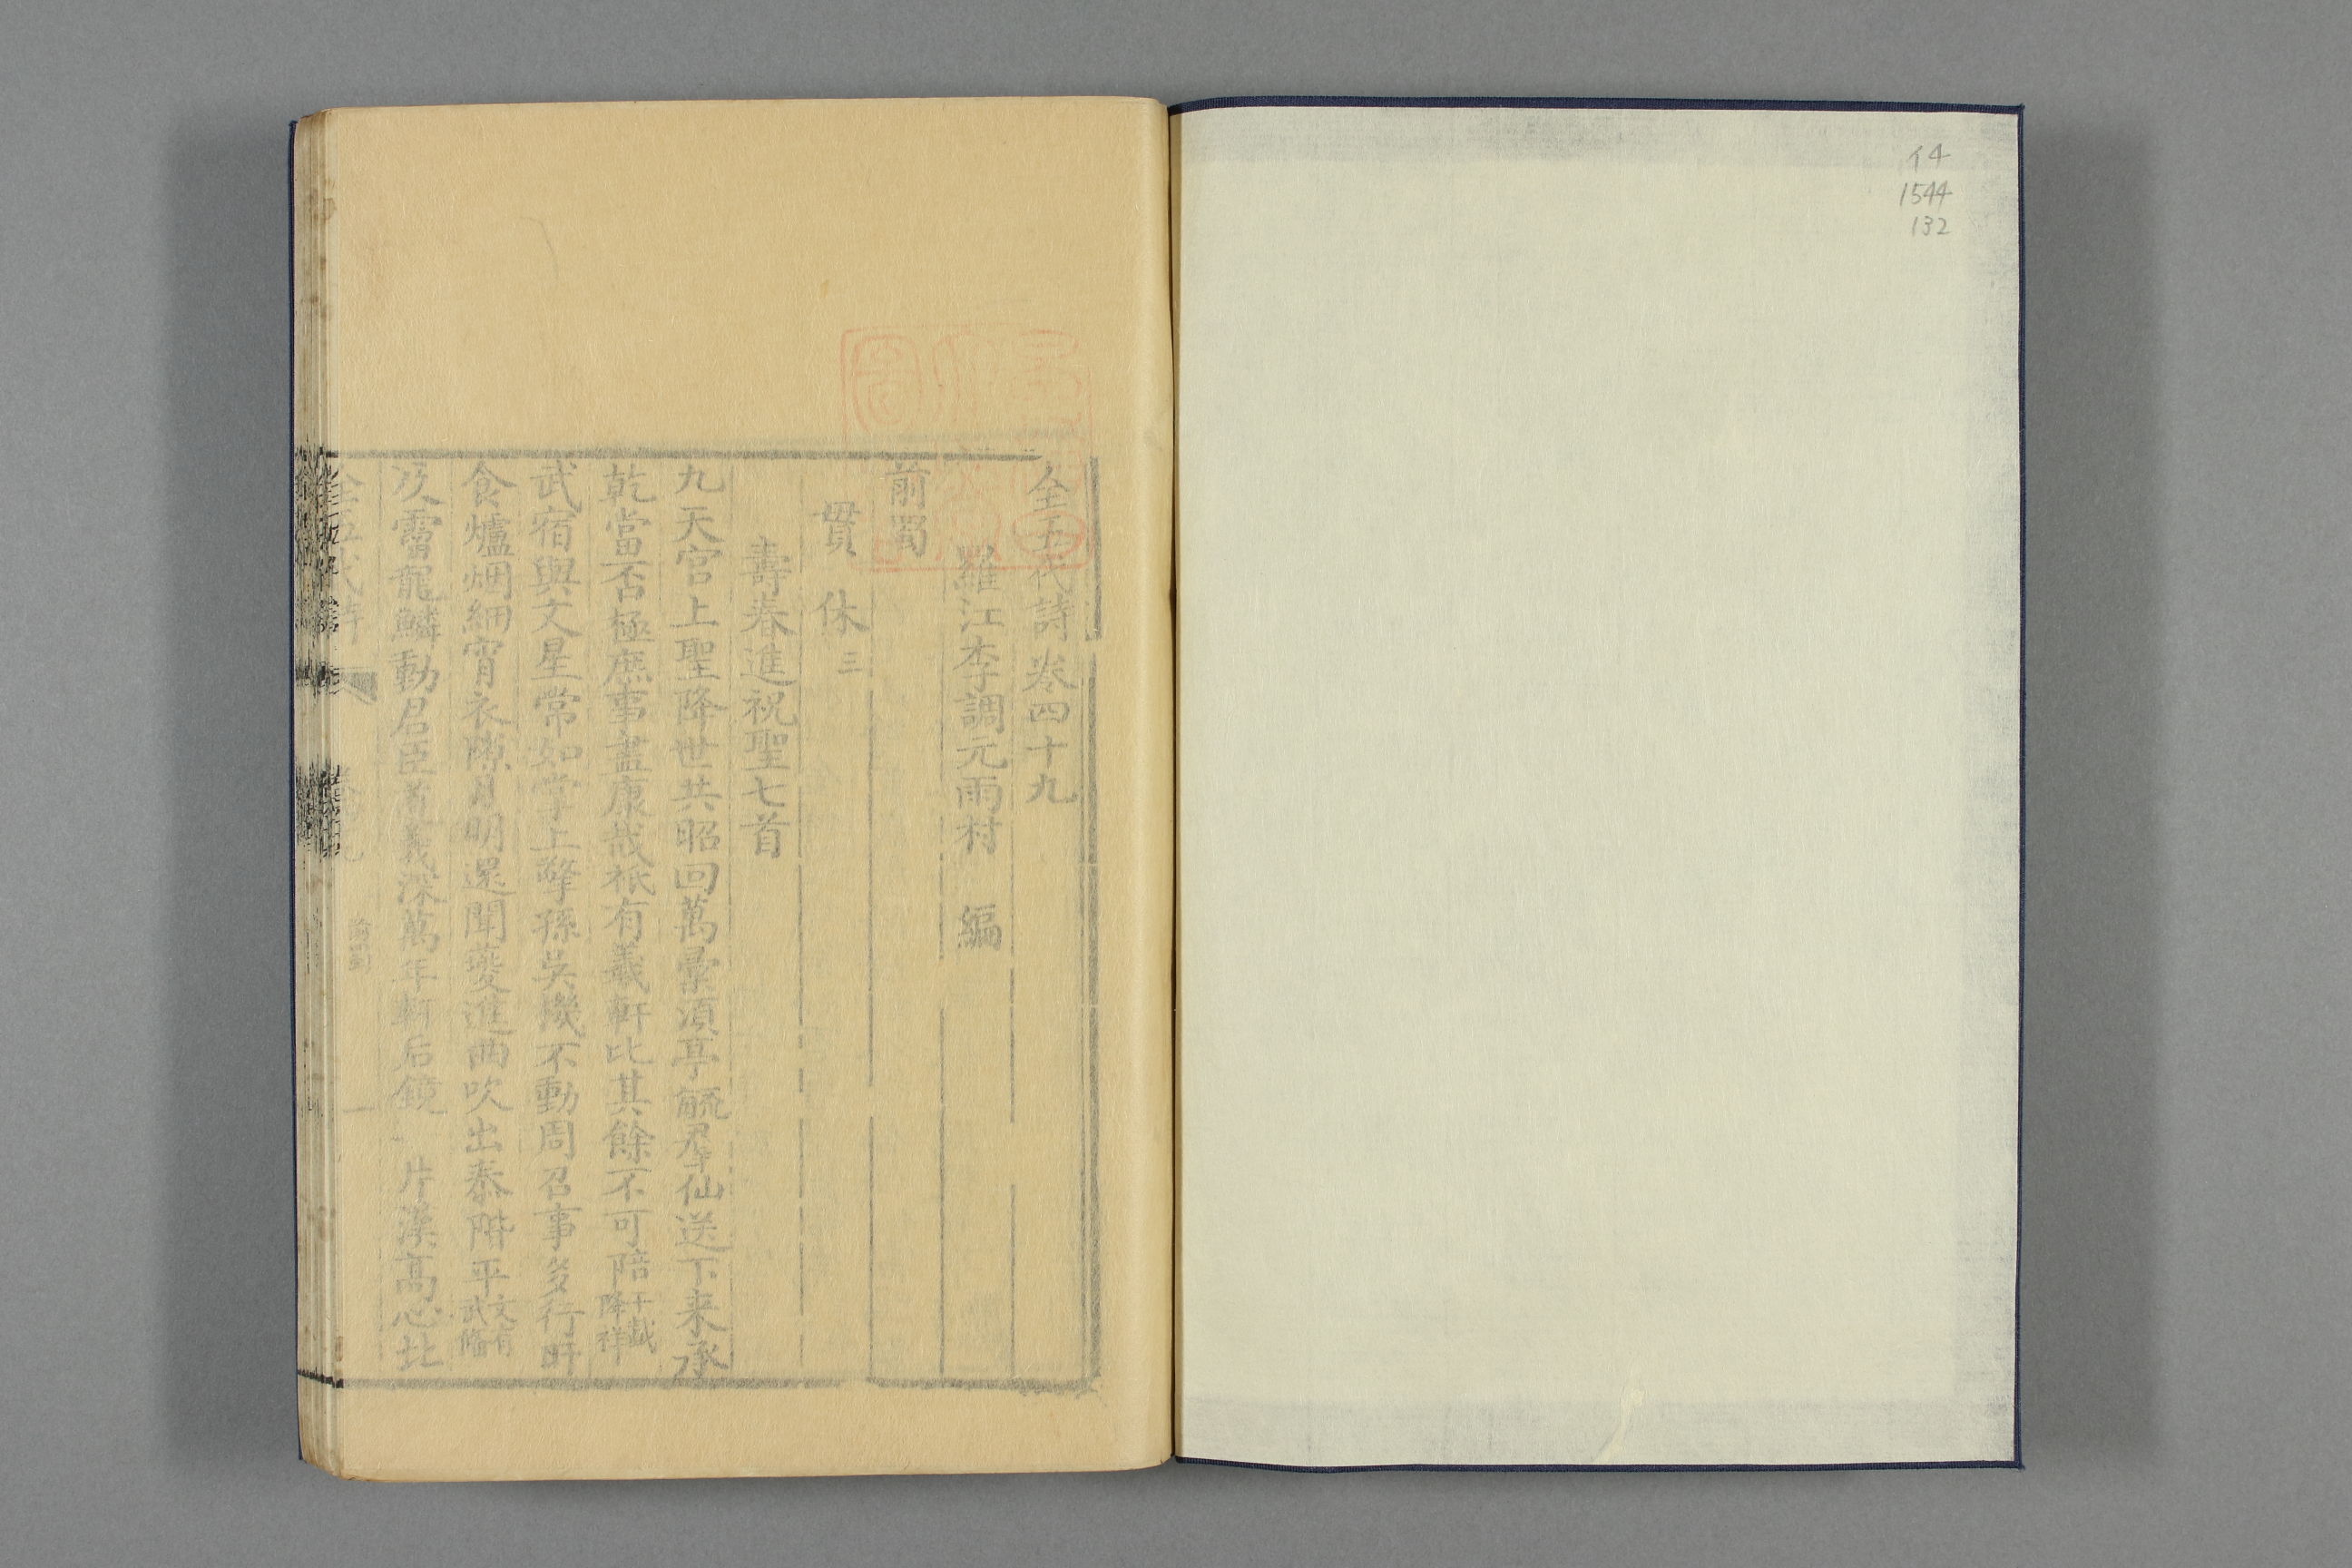 イ4
1544
132
全五代詩卷四十九
羅江李調元雨村 編
前蜀
貫休 三
壽春進祝聖七首
九天宮上聖降世共昭回萬彙須亭毓羣仙送下来承
乾當否極庶事盡康哉祇有羲軒比其餘不可陪 十載降祥
武宿與文星常如掌上擎孫吳機不動周召事多行旰
食爐烟細宵衣隙月明還聞夔進曲吹出泰階平 文有武備
及霤龍鱗動君臣道義深萬年軒后鏡一片漢高心比
全五代詩
前蜀
一